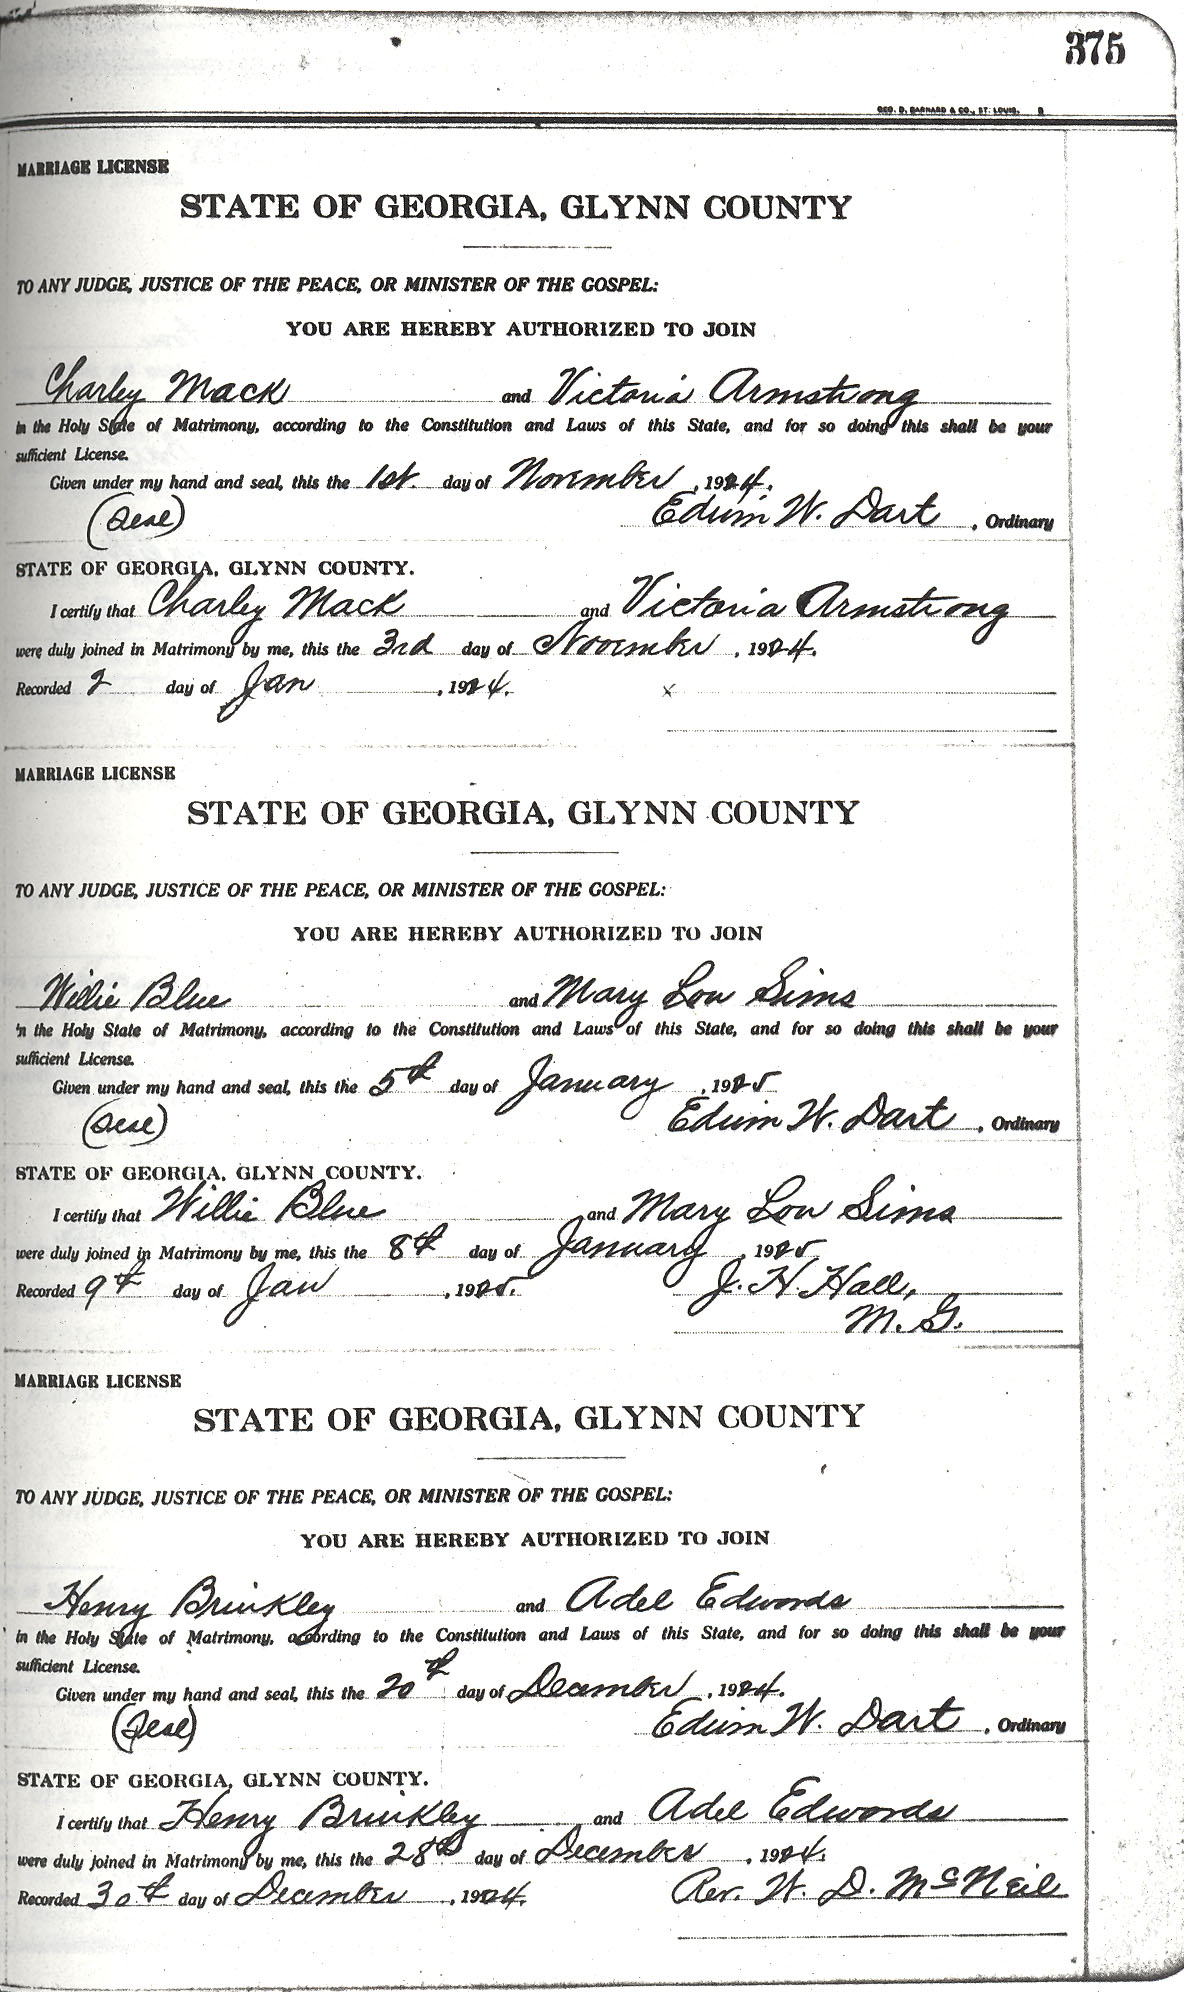 375
GEO. D. BARNARD & CO., ST. LOUIS.
MARRIAGE LICENSE
STATE OF GEORGIA, GLYNN COUNTY
TO ANY JUDGE, JUSTICE OF THE PEACE, OR MINISTER OF THE GOSPEL:
YOU ARE HEREBY AUTHORIZED TO JOIN
Charley Mack and Victoria Armstrong
in the Holy State of Matrimony, according to the Constitution and Laws of this State, and for so doing this shall be your
sufficient License.
Given under my hand and seal, this the 1st. day of November, 1924.
(Seal) Edwin W. Dart, Ordinary
STATE OF GEORGIA, GLYNN COUNTY.
I certify that Charley Mack and Victoria Armstrong
were duly joined in Matrimony by me, this the 3rd day of November, 1924.
Recorded 2 day of Jan, 1924. x
MARRIAGE LICENSE
STATE OF GEORGIA, GLYNN COUNTY
TO ANY JUDGE, JUSTICE OF THE PEACE, OR MINISTER OF THE GOSPEL:
YOU ARE HEREBY AUTHORIZED TO JOIN
Willie Blue and Mary Lou Sims
in the Holy State of Matrimony, according to the Constitution and Laws of this State, and for so doing this shall be your
sufficient License.
Given under my hand and seal, this the 5th day of January, 1925
(Seal) Edwin W. Dart, Ordinary
STATE OF GEORGIA, GLYNN COUNTY.
I certify that Willie Blue and Mary Lou Sims
were duly joined in Matrimony by me, this the 8th day of January, 1925
Recorded 9th day of Jan, 1925. J. H. Hall,
M. G.
MARRIAGE LICENSE
STATE OF GEORGIA, GLYNN COUNTY
TO ANY JUDGE, JUSTICE OF THE PEACE, OR MINISTER OF THE GOSPEL:
YOU ARE HEREBY AUTHORIZED TO JOIN
Henry Brinkley and Adel Edwords
in the Holy State of Matrimony, according to the Constitution and Laws of this State, and for so doing this shall be your
sufficient License.
Given under my hand and seal, this the 20th day of December, 1924.
(Seal) Edwin W. Dart, Ordinary
STATE OF GEORGIA, GLYNN COUNTY.
I certify that Henry Brinkley and Adel Edwords
were duly joined in Matrimony by me, this the 28th day of December, 1924.
Recorded 30th day of December, 1924. Rev. W. D. McNeil